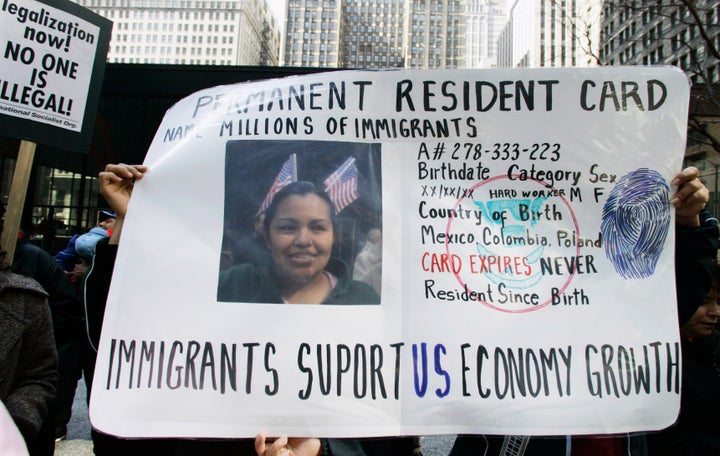 legalization
now!
NO ONE
IS
ILLEGAL!
national Socialist Org.
PERMANENT RESIDENT CARD
NAME MILLIONS OF IMMIGRANTS
A# 278-333-223
Birthdate Category Sex
XX/XX/XX HARD WORKER M F
Country of Birth
Mexico, Colombia, Poland
CARD EXPIRES NEVER
Resident Since Birth
IMMIGRANTS SUPORT US ECONOMY GROWTH